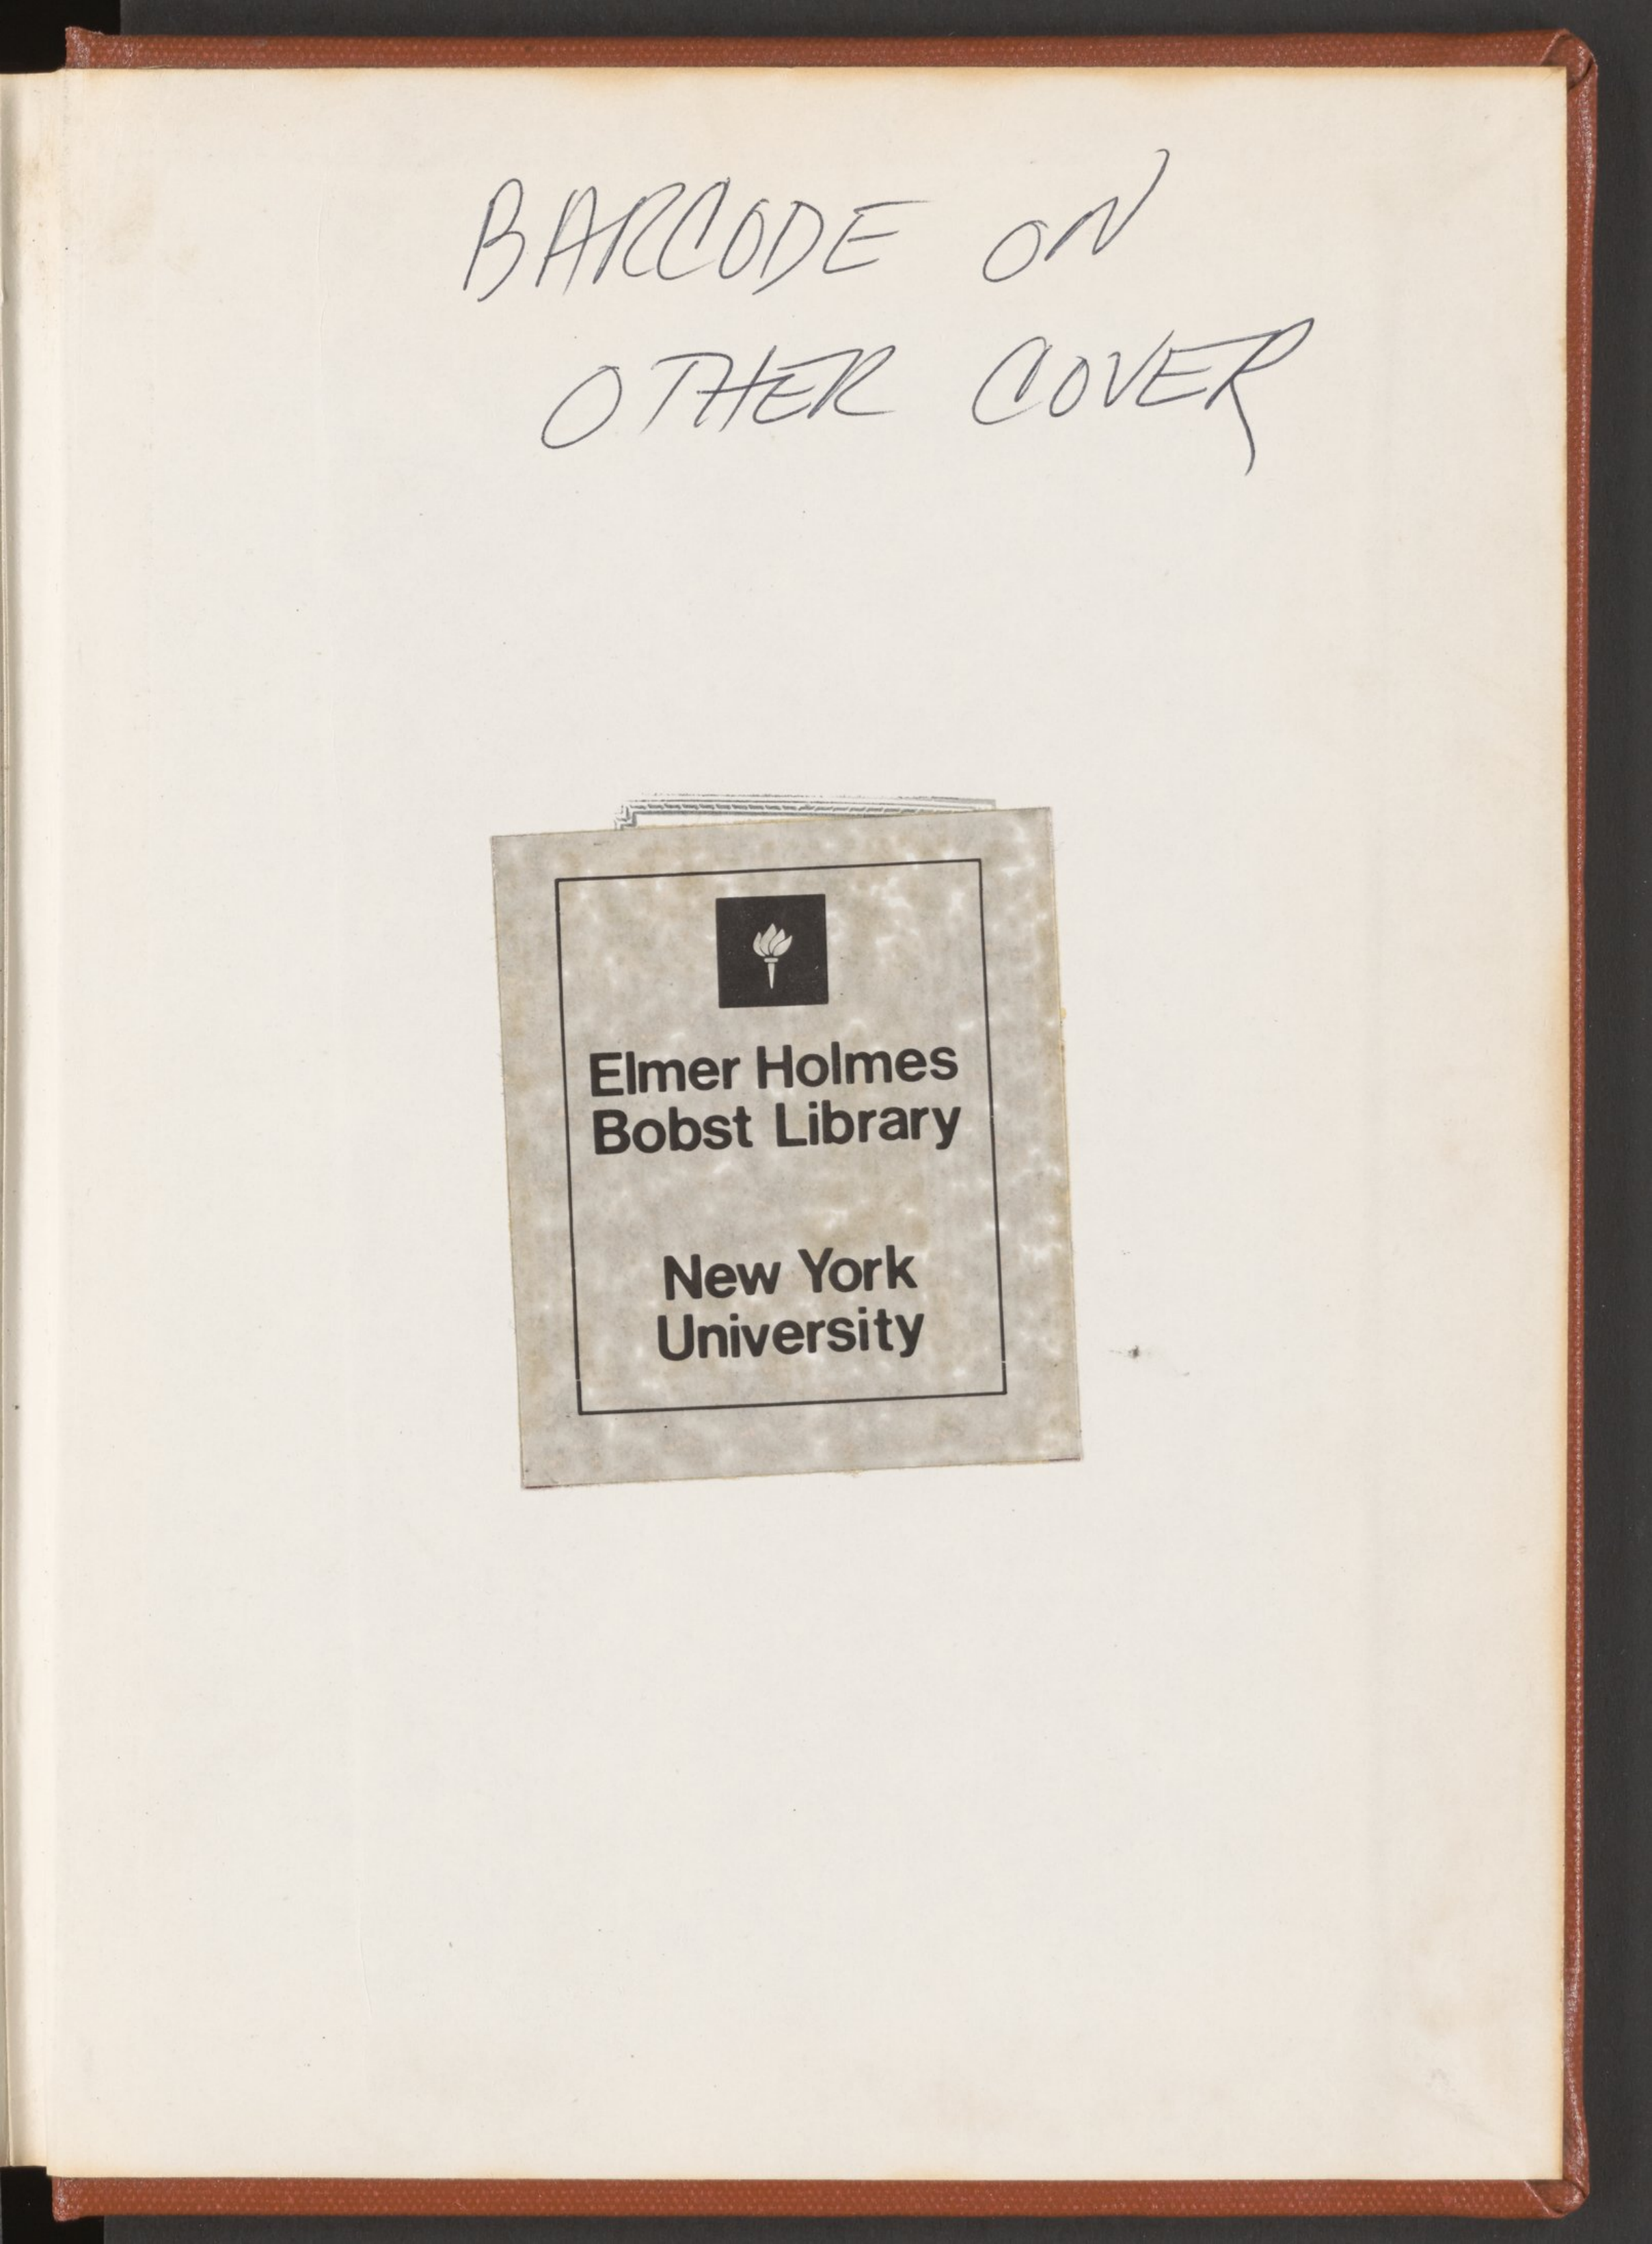 BARCODE ON
OTHER COVER
Elmer Holmes
Bobst Library
New York
University